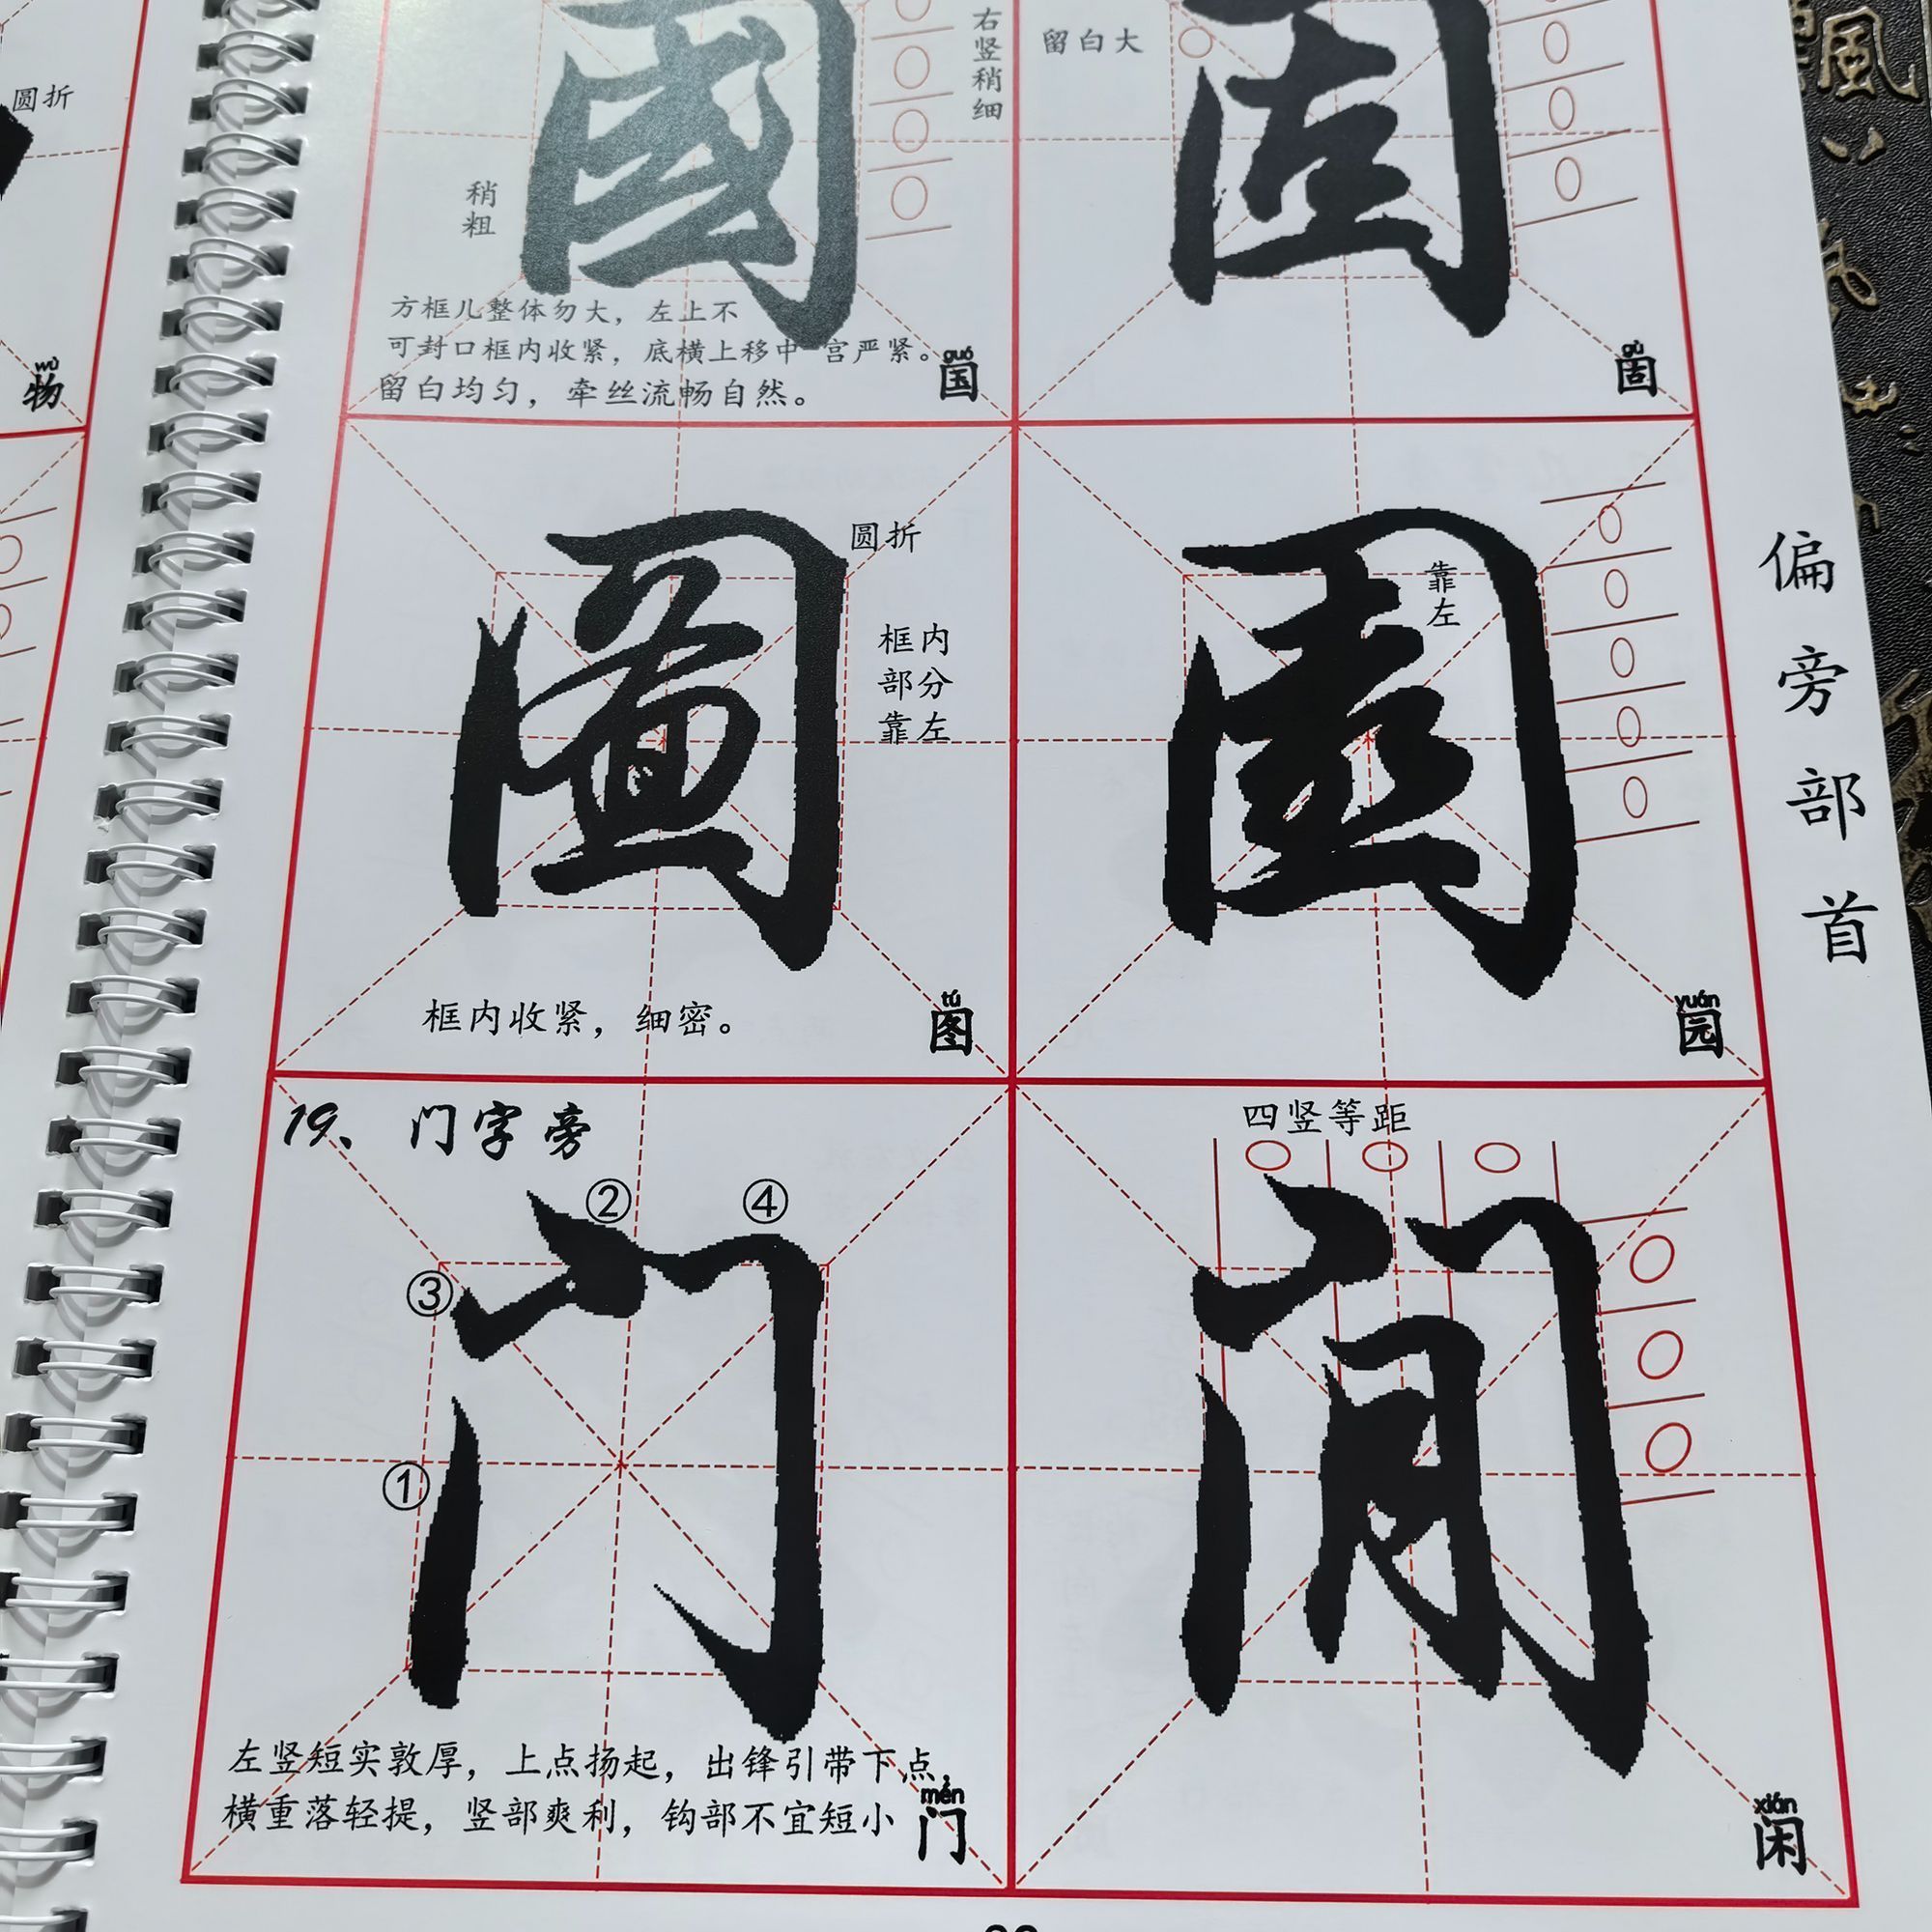 圆折
wù
物
國
右竖稍细
稍粗
方框儿整体勿大，左上不
可封口框内收紧，底横上移中宫严紧。
留白均匀，牵丝流畅自然。
guó
国
留白大
固
gù
固
圖
圆折
框内
部分
靠左
框内收紧，细密。
tú
图
園
靠左
yuán
园
19、门字旁
②
④
③
①
门
左竖短实敦厚，上点扬起，出锋引带下点，
横重落轻提，竖部爽利，钩部不宜短小
mén
门
四竖等距
閒
xián
闲
偏旁部首
風